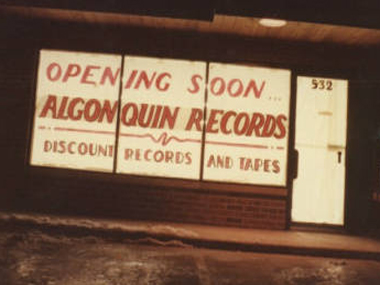 OPENING SOON...
ALGONQUIN RECORDS
DISCOUNT RECORDS AND TAPES
532